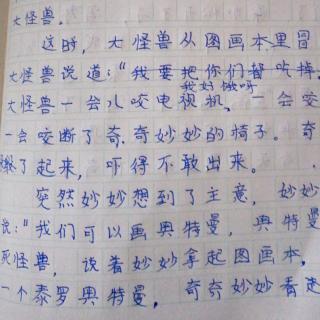 大怪兽。
这时，大怪兽从图画本里冒
大怪兽说道："我要把你们都吃掉
我好饿呀
大怪兽一会儿咬电视机，一会咬
一会咬断了奇奇妙妙的椅子。奇
了起来，吓得不敢出来。
突然妙妙想到了主意，妙妙
说："我们可以画奥特曼，奥特曼
死怪兽，说着妙妙拿起图画本，
一个泰罗奥特曼，奇奇妙妙看